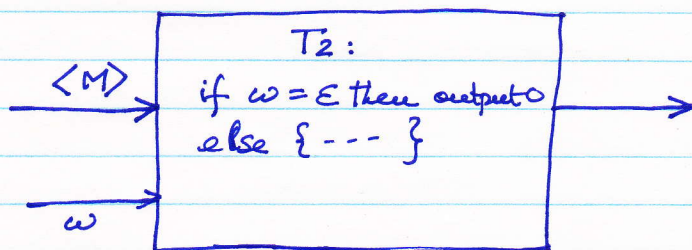 T2:
<M>
if ω = ε then output 0
else { --- }
ω